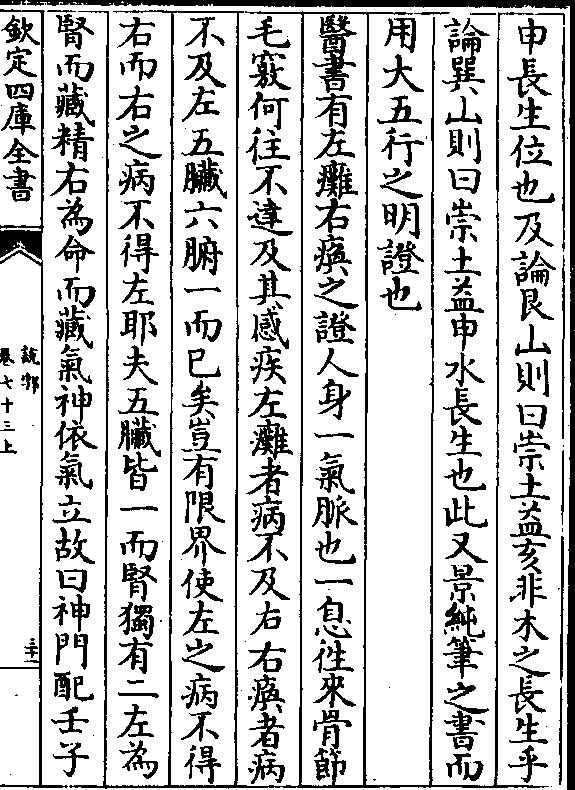 申長生位也及論艮山則曰崇土益亥非木之長生乎
論巽山則曰崇土益申水長生也此又景純筆之書而
用大五行之明證也
醫書有左癱右瘓之證人身一氣脈也一息徃來骨節
毛竅何往不達及其感疾左癱者病不及右右瘓者病
不及左五臟六腑一而已矣豈有限界使左之病不得
右而右之病不得左耶夫五臟皆一而腎獨有二左為
腎而藏精右為命而藏氣神依氣立故曰神門配壬子
欽定四庫全書
說郛
卷七十三上